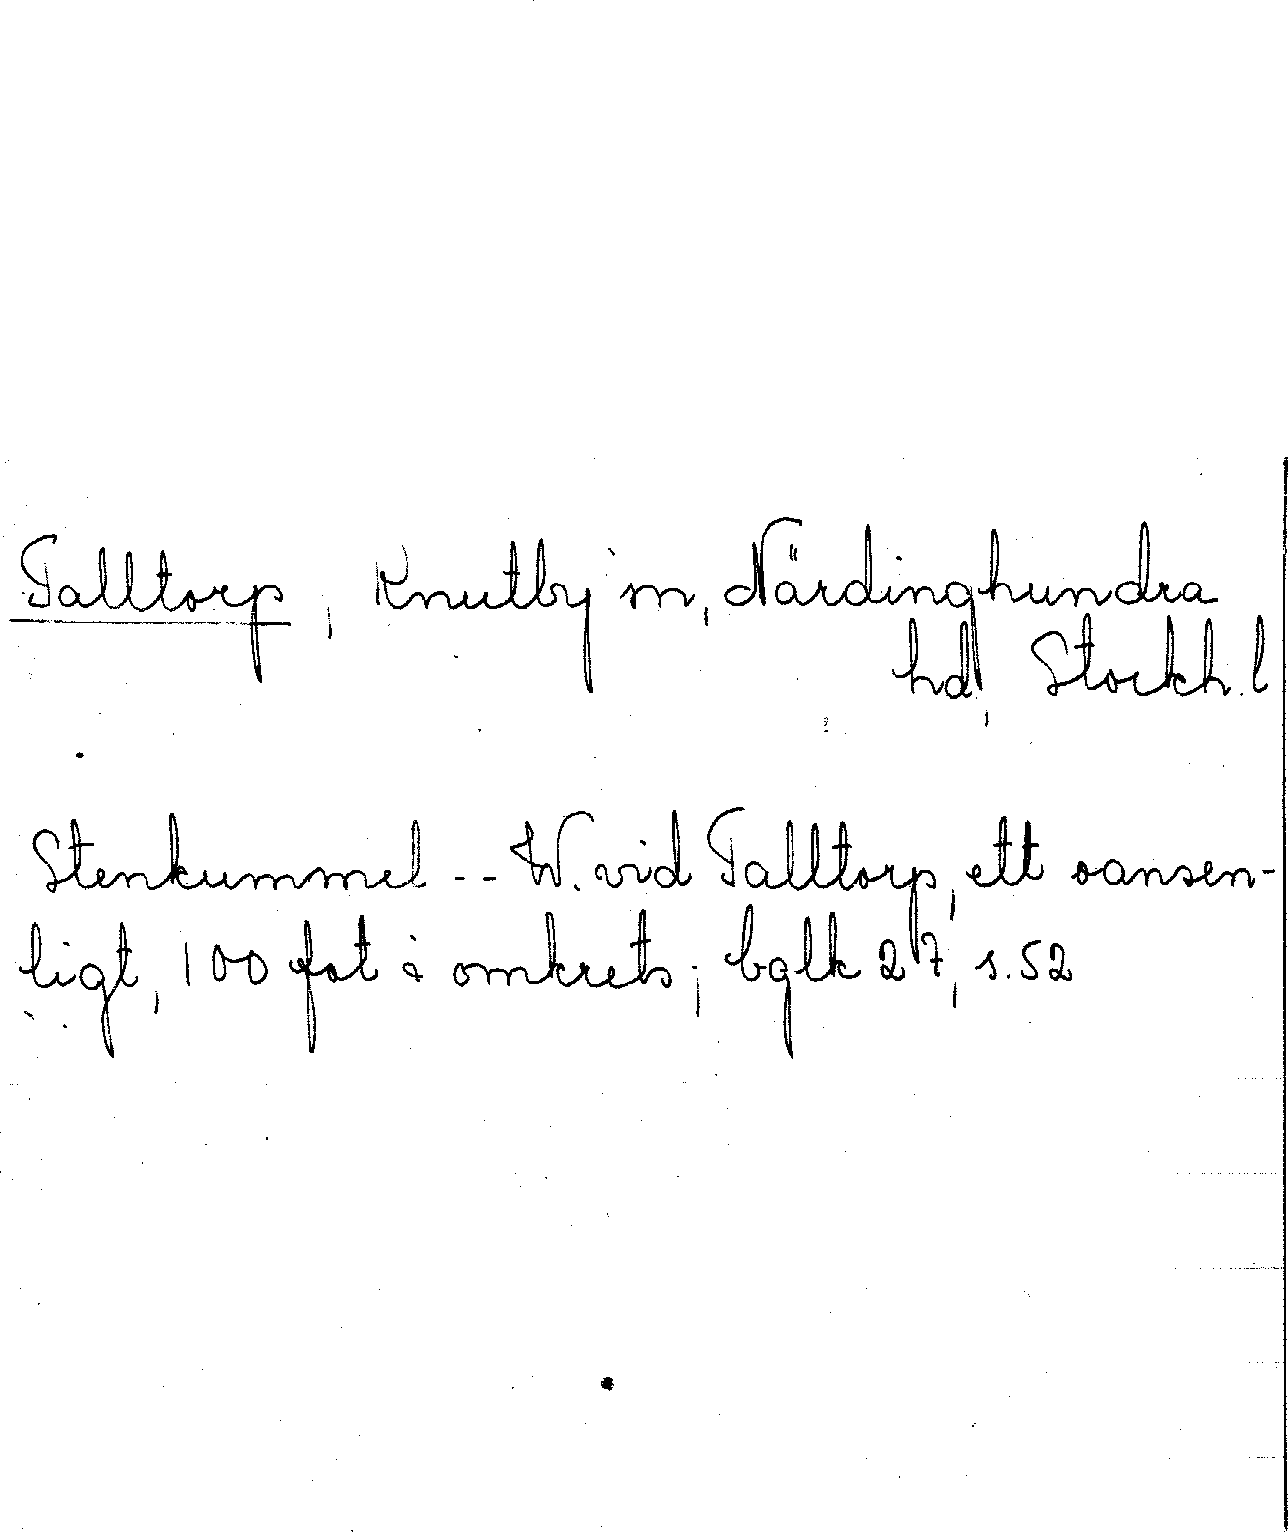 Talltorp, Knutby sn, Närdinghundra
hd, Stockh. l
Stenkummel -- W. vid Talltorp, ett oansen-
ligt, 100 fot i omkrets; bglk 27, s. 52